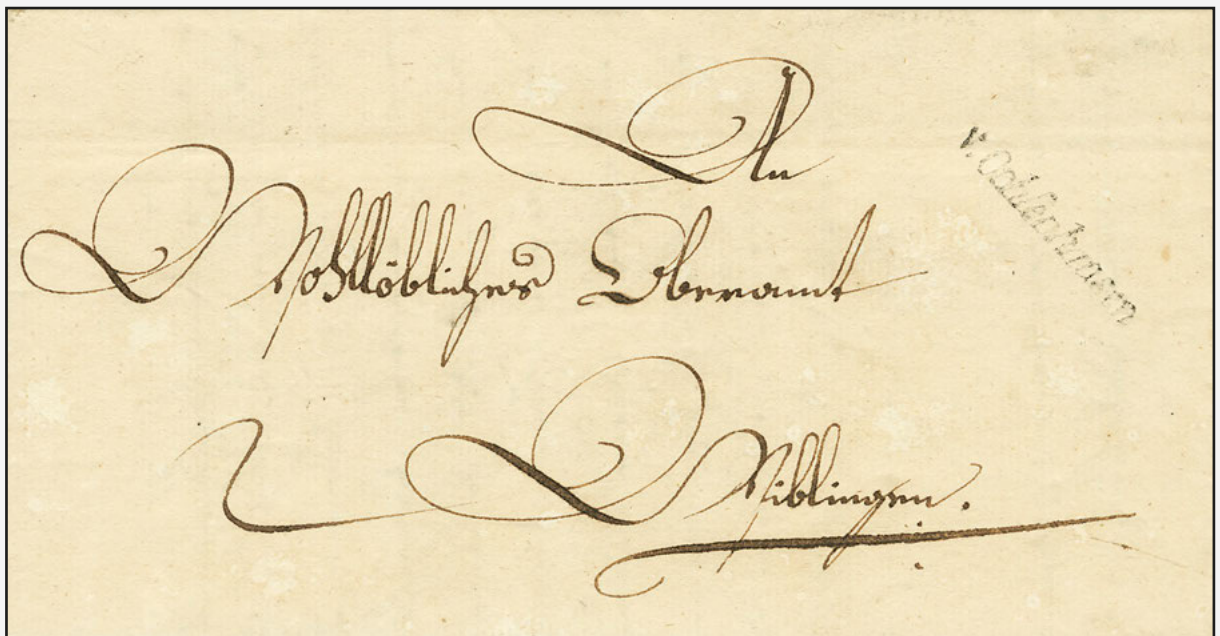 An
Wohllöbliches Oberamt
Wiblingen.
v. Ochsenhausen